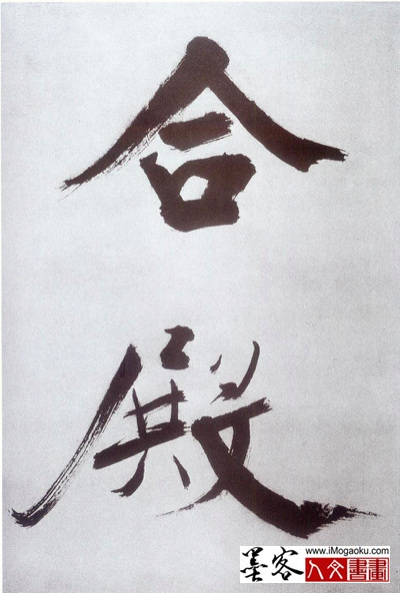 合
殿
墨客
www.iMogaoku.com
人文書畫